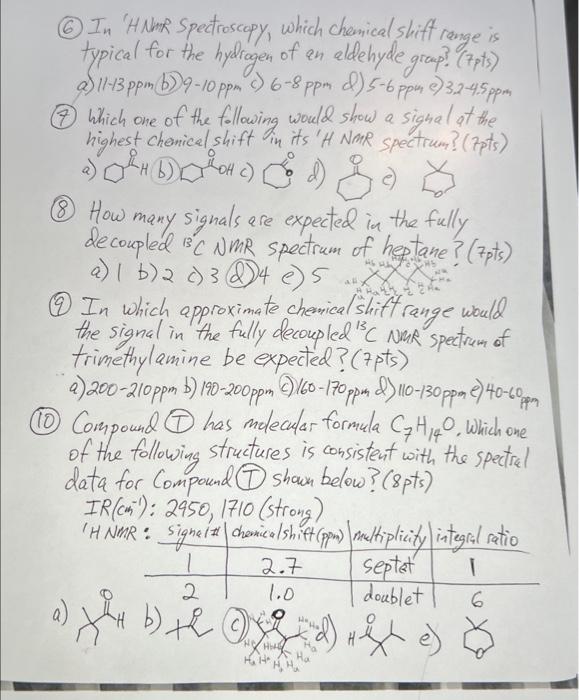 ⑥ In ¹H NMR Spectroscopy, which chemical shift range is
typical for the hydrogen of an aldehyde group? (7pts)
a) 11-13 ppm b) 9-10 ppm c) 6-8 ppm d) 5-6 ppm e) 3.2-4.5 ppm
⑦ Which one of the following would show a signal at the
highest chemical shift in its ¹H NMR spectrum? (7pts)
a) O H b) O OH c) O O d) O e) O
⑧ How many signals are expected in the fully
decoupled ¹³C NMR spectrum of heptane? (7pts)
a) 1 b) 2 c) 3 d) 4 e) 5
⑨ In which approximate chemical shift range would
the signal in the fully decoupled ¹³C NMR spectrum of
trimethylamine be expected? (7pts)
a) 200-210 ppm b) 190-200 ppm c) 160-170 ppm d) 110-130 ppm e) 40-60 ppm
⑩ Compound Ⓣ has molecular formula C₇H₁₄O. Which one
of the following structures is consistent with the spectral
data for Compound Ⓣ shown below? (8pts)
IR (cm⁻¹): 2950, 1710 (strong)
¹H NMR: signal# chemical shift (ppm) multiplicity integral ratio
1 2.7 septet 1
2 1.0 doublet 6
a) O H b) O c) O d) H O e) O